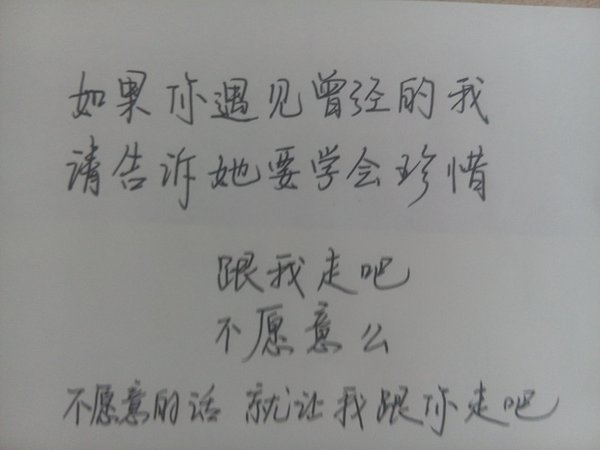 如果你遇见曾经的我
请告诉她要学会珍惜
跟我走吧
不愿意么
不愿意的话 就让我跟你走吧